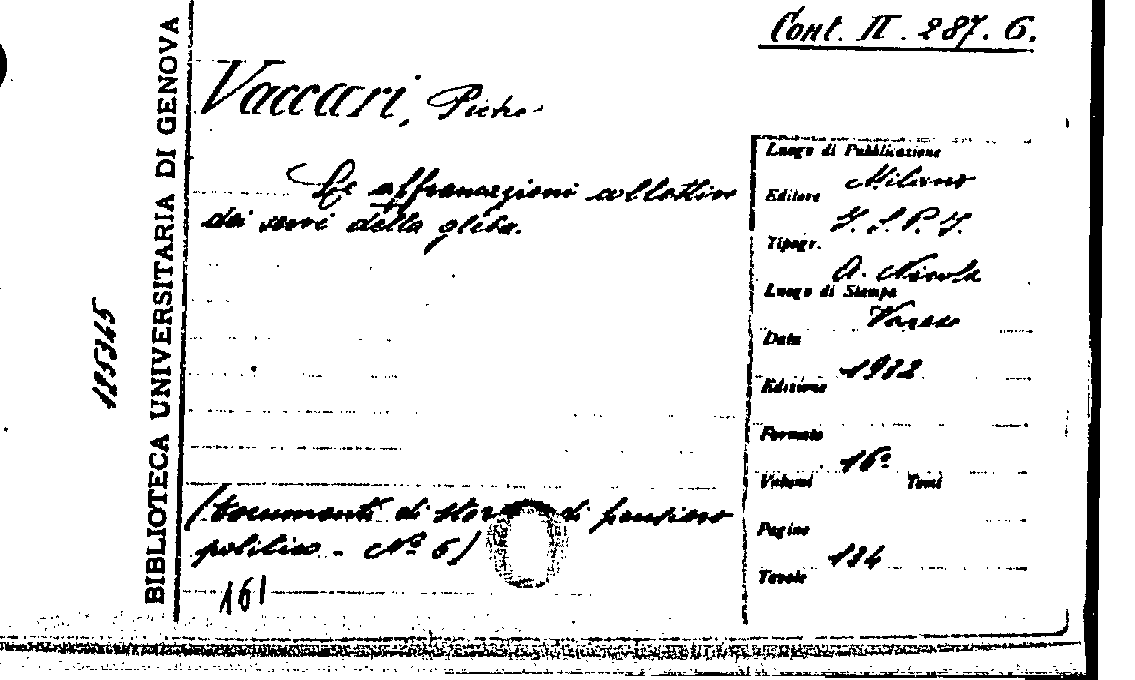 Cont. II. 287. 6.
Vaccari, Pietro
Le affrancazioni collettive
dei servi della gleba.
(Documenti di storia e di pensiero
politico - Nº 6)
161
BIBLIOTECA UNIVERSITARIA DI GENOVA
125345
Luogo di Pubblicazione
Milano
Editore
I. S. P. I.
Tipogr.
A. Nicola
Luogo di Stampa
Varese
Data
Edizione
Formato
16º
Volumi Tomi
Pagine
Tavole